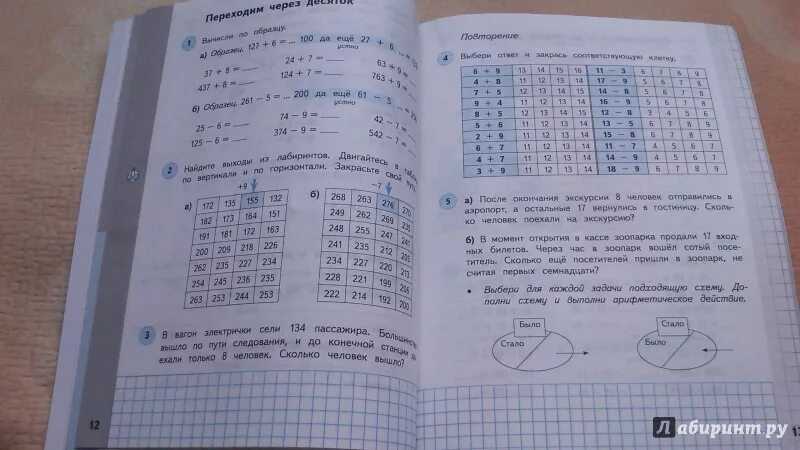 Переходим через десяток
1 Вычисли по образцу.
а) Образец. 127 + 6 = ... 100 да ещё 27 + 6
устно
37 + 8 = 24 + 7 = 63 + 9 =
437 + 8 = 124 + 7 = 763 + 9 =
б) Образец. 261 − 5 = ... 200 да ещё 61 − 5
устно
25 − 6 = 74 − 9 = 42 − 7 =
125 − 6 = 374 − 9 = 542 − 7 =
2 Найдите выходы из лабиринтов. Двигайтесь в
по вертикали и по горизонтали. Закрасьте свой
+9 −7
а) б)
172 135 155 132
182 173 164 151
191 181 172 163
200 209 218 226
262 235 227 234
254 245 236 235
263 253 244 253
268 263 276 270
249 262 269
248 255 247
241 235 212
234 227 220
228 221 199
222 214 192 200
3 В вагон электрички сели 134 пассажира.
вышло по пути следования, и до конечной станции
ехали только 8 человек. Сколько человек вышло?
12
Повторение
4 Выбери ответ и закрась соответствующую клетку.
6 + 9 13 14 15 16 11 − 3 6 7 8 9
4 + 8 11 12 13 14 17 − 9 5 6 7 8
7 + 5 12 13 14 14 − 8 5 6 7 8
9 + 4 11 12 13 14 16 − 9 5 6 7 8
8 + 5 11 12 13 14 12 − 8 3 4 5 6
5 + 6 11 12 13 14 13 − 5 6 7 8 9
2 + 9 11 12 13 14 15 − 8 6 7 8 9
6 + 7 11 12 13 14 11 − 7 4 5 6 7
4 + 7 11 12 13 14 14 − 9 4 5 6 7
3 + 9 11 12 13 14 18 − 9 6 7 8 9
5 а) После окончания экскурсии 8 человек отправились в
аэропорт, а остальные 17 вернулись в гостиницу. Сколь-
ко человек поехали на экскурсию?
б) В момент открытия в кассе зоопарка продали 17 вход-
ных билетов. Через час в зоопарк вошёл сотый посе-
титель. Сколько ещё посетителей пришли в зоопарк, не
считая первых семнадцати?
• Выбери для каждой задачи подходящую схему. До-
полни схему и выполни арифметическое действие.
Было Стало
Стало Было
Лабиринт.ру